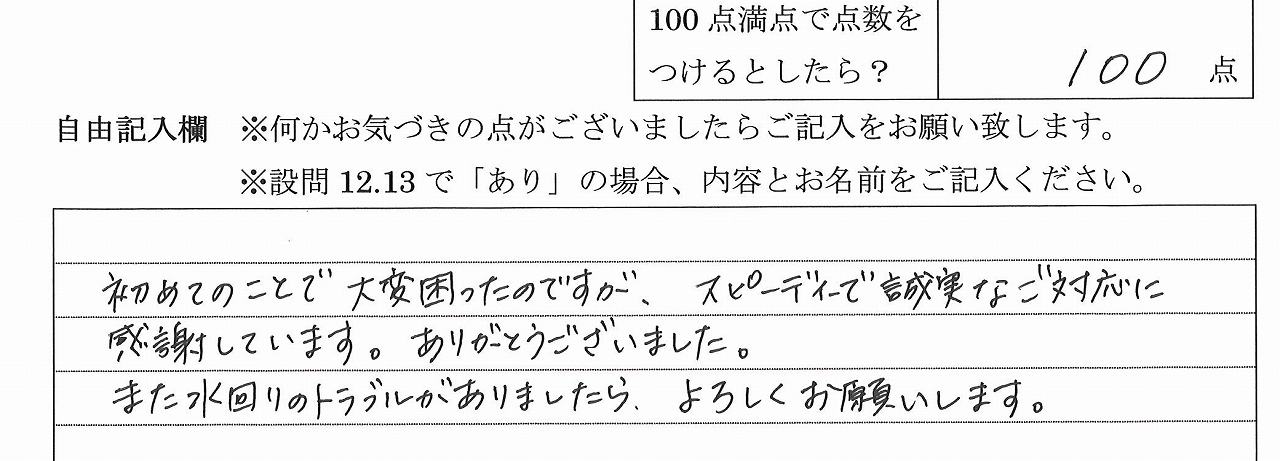 100点満点で点数を
つけるとしたら？
100 点
自由記入欄 ※何かお気づきの点がございましたらご記入をお願い致します。
※設問12.13で「あり」の場合、内容とお名前をご記入ください。
初めてのことで大変困ったのですが、スピーディーで誠実なご対応に
感謝しています。ありがとうございました。
また水回りのトラブルがありましたら、よろしくお願いします。